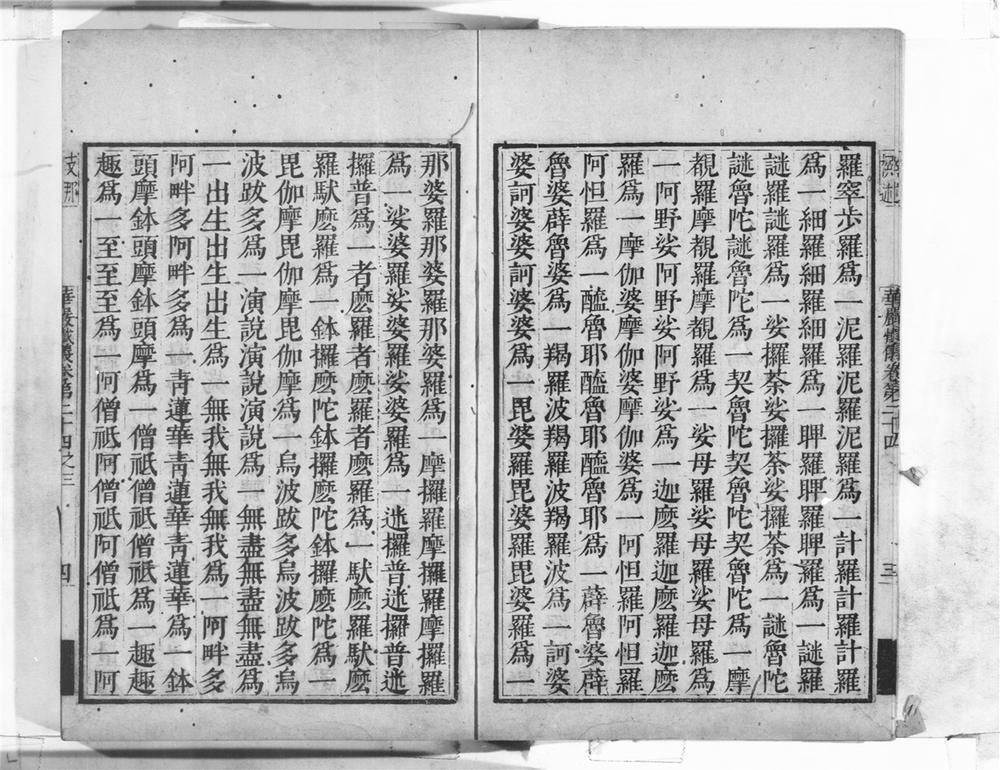 羅窣歩羅爲一泥羅泥羅泥羅爲一計羅計羅計羅
爲一細羅細羅細羅爲一睥羅睥羅睥羅爲一謎羅
謎羅謎羅爲一娑攞荼娑攞荼娑攞荼爲一謎魯陀
謎魯陀謎魯陀爲一契魯陀契魯陀契魯陀爲一摩
覩羅摩覩羅摩覩羅爲一娑母羅娑母羅娑母羅爲
一阿野娑阿野娑阿野娑爲一迦麽羅迦麽羅迦麽
羅爲一摩伽婆摩伽婆摩伽婆爲一阿怛羅阿怛羅
阿怛羅爲一醯魯耶醯魯耶醯魯耶爲一薜魯婆薜
魯婆薜魯婆爲一羯羅波羯羅波羯羅波爲一訶婆
婆訶婆婆訶婆婆爲一毘婆羅毘婆羅毘婆羅爲一
那婆羅那婆羅那婆羅爲一摩攞羅摩攞羅摩攞羅
爲一娑婆羅娑婆羅娑婆羅爲一迷攞普迷攞普迷
攞普爲一者麽羅者麽羅者麽羅爲一馱麽羅馱麽
羅馱麽羅爲一鉢攞麽陀鉢攞麽陀鉢攞麽陀爲一
毘伽摩毘伽摩毘伽摩爲一烏波跋多烏波跋多烏
波跋多爲一演說演說演說爲一無盡無盡無盡爲
一出生出生出生爲一無我無我無我爲一阿畔多
阿畔多阿畔多爲一青蓮華青蓮華青蓮華爲一鉢
頭摩鉢頭摩鉢頭摩爲一僧祇僧祇僧祇爲一趣趣
趣爲一至至至爲一阿僧祇阿僧祇阿僧祇爲一阿
支那 卷第二十四之三 四